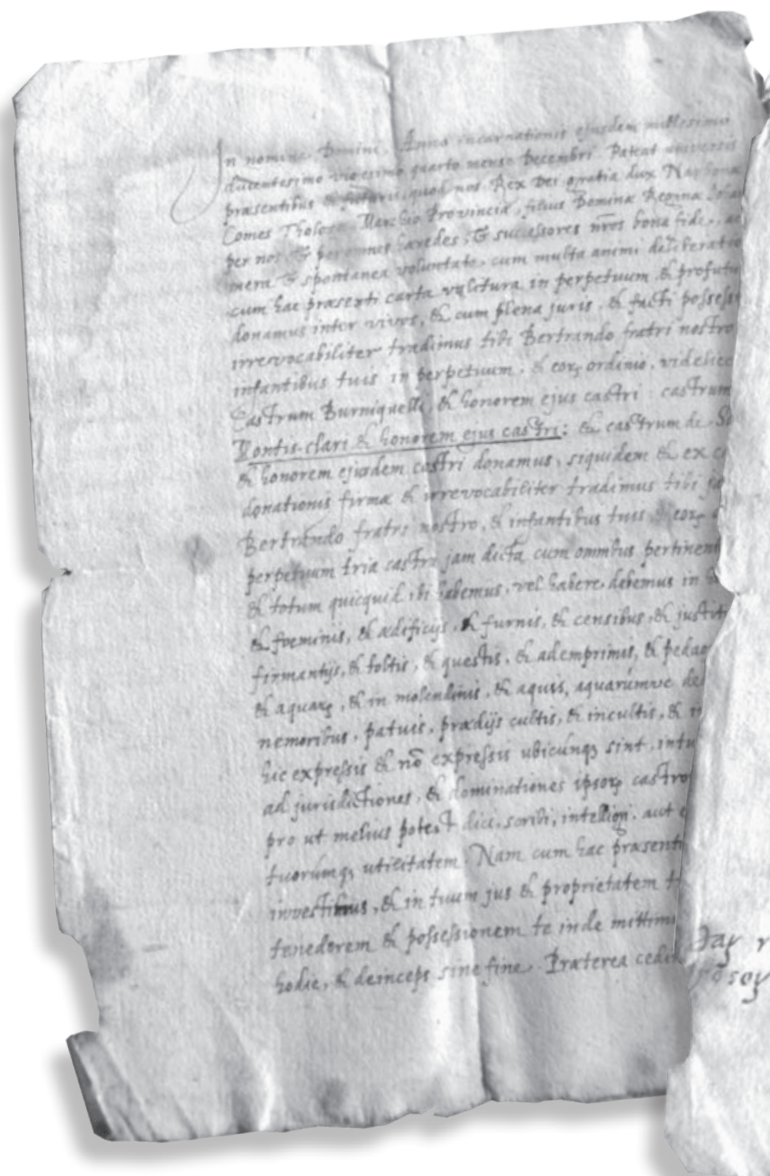 In nomine Domini. Anno incarnationis ejusdem millesimo
ducentesimo vigesimo quarto mense Decembri. Pateat universis
præsentibus & futuris, quod nos Rex Dei gratia dux Narbonæ
Comes Tholosæ Marchio Provinciæ, filius Dominæ Reginæ
per nos & per omnes hæredes, & successores nr̃os bona fide, ac
mera & spontanea voluntate, cum multa animi deliberatio
cum hac præsenti carta valitura in perpetuum & profutu
donamus inter vivos, & cum plena juris, & facti possessi
irrevocabiliter tradimus tibi Bertrando fratri nostro
infantibus tuis in perpetuum, & eorꝫ ordinio, videlicet
Castrum Burniquelli & honorem ejus castri: castrum
Montis-clari & honorem ejus castri: & castrum de
& honorem ejusdem castri donamus, siquidem & ex
donationis firmæ & irrevocabiliter tradimus tibi
Bertrando fratri nostro, & infantibus tuis & eorꝫ
perpetuum tria castra jam dicta cum omnibus pertinent
& totum quicquid ibi habemus, vel habere debemus in
& fœminis, & ædificijs, & furnis, & censibus, & justit
firmantijs, & toltis, & questis, & ademprimis, & pedag
& aquarꝫ, & in molendinis, & aquis, aquarumve de
nemoribus, patuis, prædijs cultis, & incultis, &
hic expressis & nõ expressis ubicunqꝫ sint, intu
ad jurisdictiones, & dominationes ipsorꝫ castro
pro ut melius potest dici, scribi, intelligi, aut
tuorumqꝫ utilitatem. Nam cum hac præsenti
investimus, & in tuum jus & proprietatem
tenedorem & possessionem te inde mittimu
hodie, & deinceps sine fine. Præterea cedi